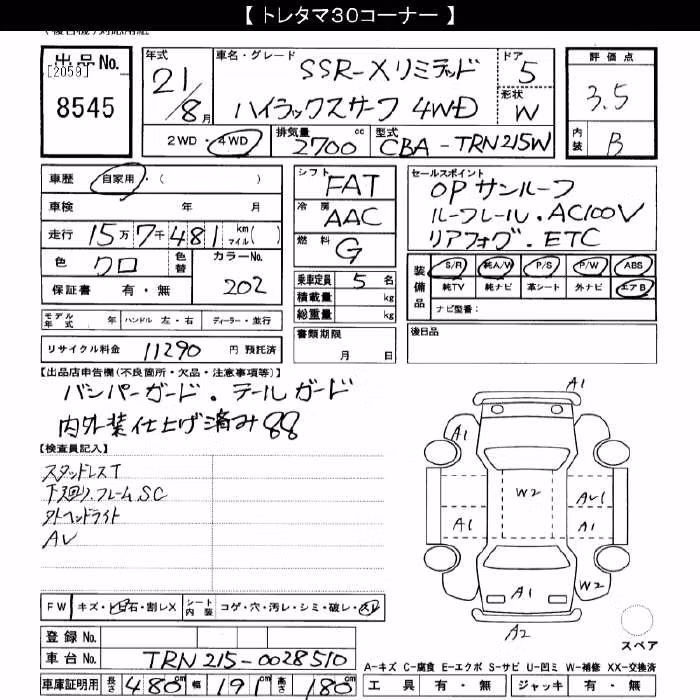 【 トレタマ30コーナー 】
出品No.
[2059]
8545
年式
21/8月
車名・グレード
SSR-Xリミテッド
ハイラックスサーフ 4WD
ドア
5
形状
W
評価点
3.5
内装
B
2WD・4WD
排気量
2700cc
型式
CBA-TRN215W
車歴 自家用・( )
車検 年 月
走行 15万7千481 km マイル( )
色 クロ 色替 カラーNo. 202
保証書 有・無
モデル年式 年 ハンドル 左・右 ディーラー・並行
リサイクル料金 11290 円 預託済
シフト FAT
冷房 AAC
燃料 G
乗車定員 5 名
積載量 kg
総重量 kg
書類期限
月 日
セールスポイント
OPサンルーフ
ルーフレール.AC100V
リアフォグ.ETC
装備品
S/R 純A/W P/S P/W ABS
純TV 純ナビ 革シート 外ナビ エアB
ナビ型番:
後日品
【出品店申告欄(不良箇所・欠品・注意事項等)】
バンパーガード.テールガード
内外装仕上げ済み88
【検査員記入】
スタッドレスT
下回り.フレームSC
外ヘッドライト
AV
FW キズ・飛石・割レX シート内装 コゲ・穴・汚レ・シミ・破レ・スレ
登録No.
車台No. TRN215-0028510
車庫証明用 長さ 480cm 幅 191cm 高さ 180cm
A1
A1
A1
W2
A1
AU1
A1
A1
W2
A2
スペア
A-キズ C-腐食 E-エクボ S-サビ U-凹ミ W-補修 XX-交換済
工具 有・無 ジャッキ 有・無